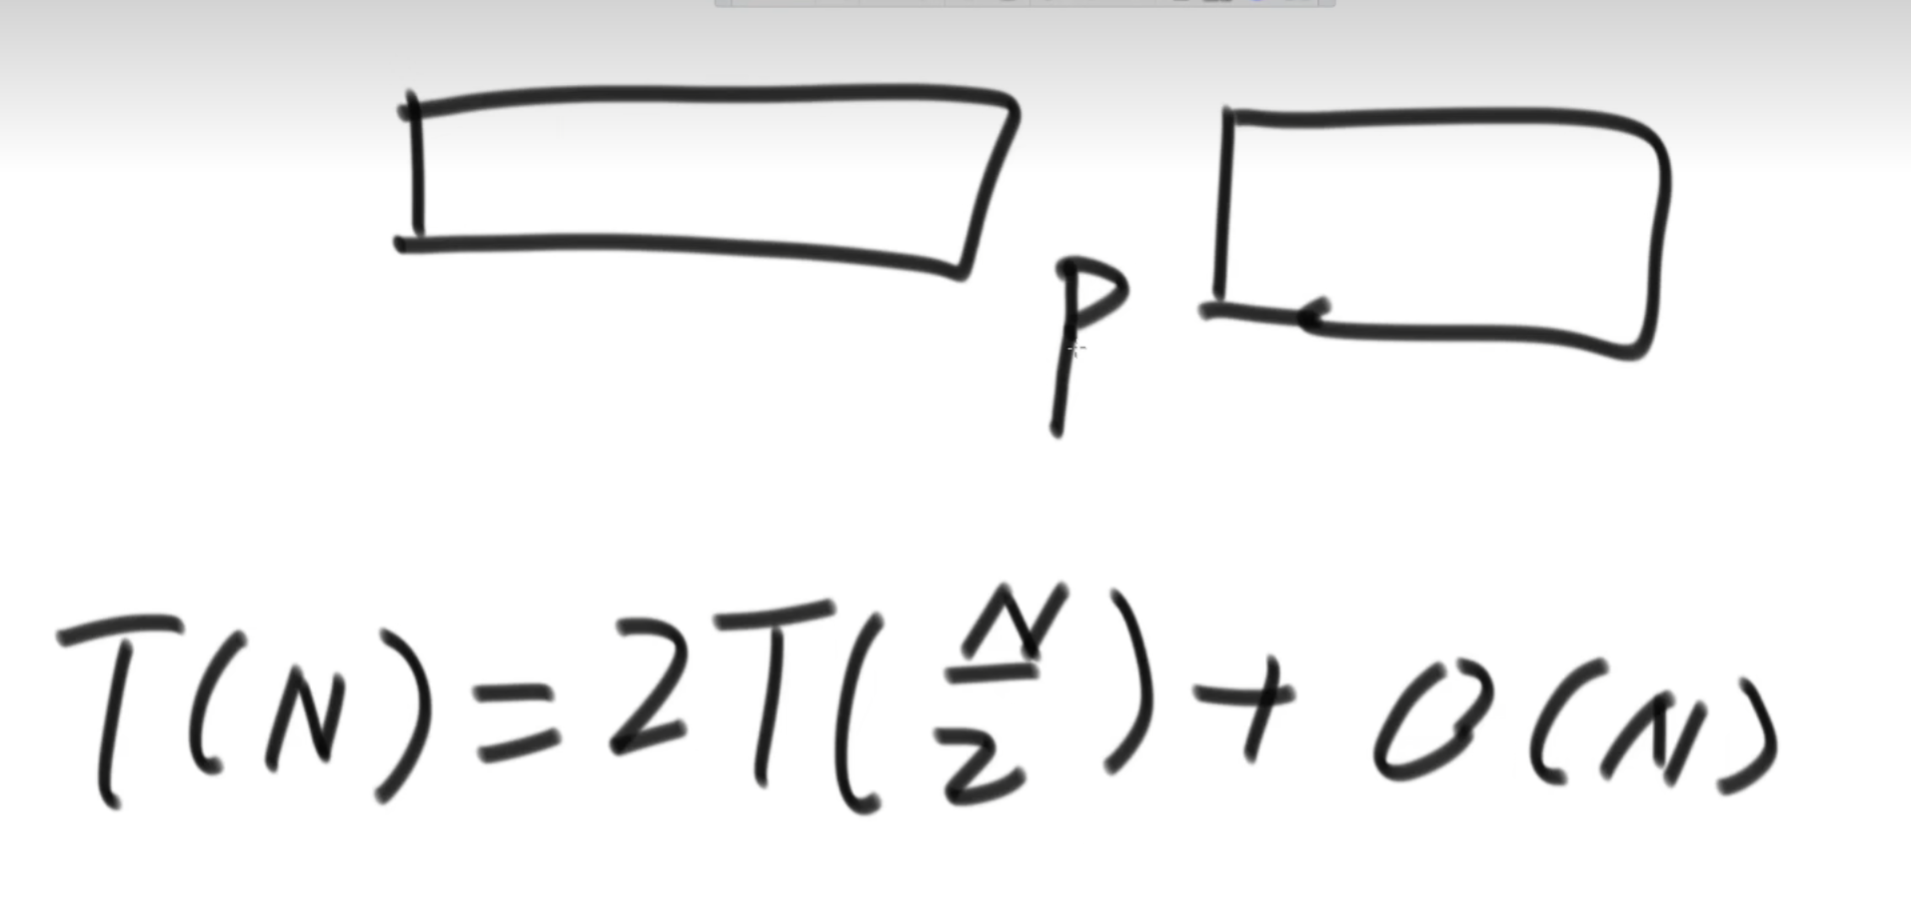 P
T(N)=2T(N/2)+O(N)